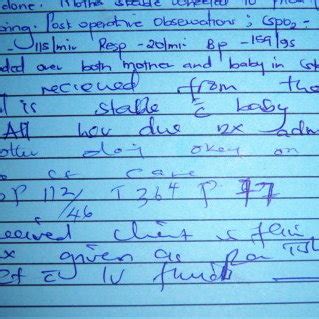 elone. Mother stable
oing. Post operative observations; Spo2
- 115/min Resp - 20/min Bp - 159/95
ded over both mother and baby in
recieved from the
is stable c baby
All her due Rx adm
other doing okey on
of care
BP 112/46 T 364 P 77
received client is fair
given as per
c IV fluid